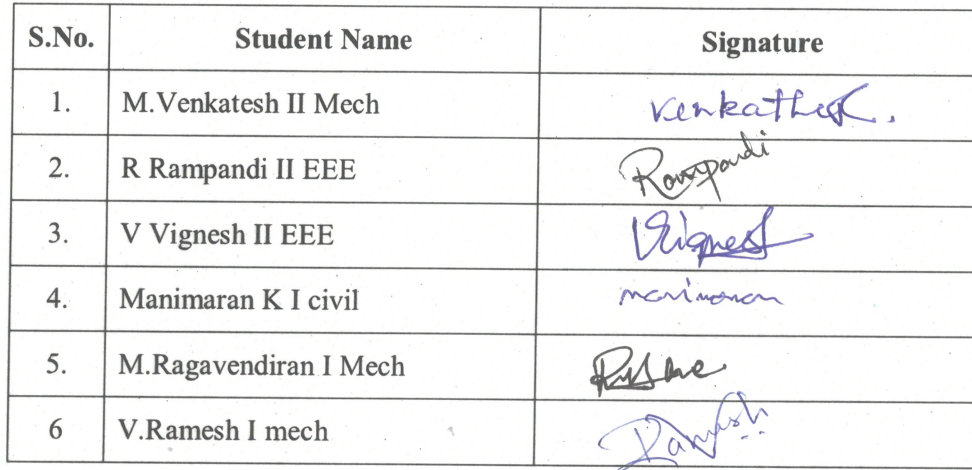 S.No. Student Name Signature
1. M.Venkatesh II Mech Venkathesh.
2. R Rampandi II EEE Rampandi
3. V Vignesh II EEE V.Vignesh
4. Manimaran K I civil manimaran
5. M.Ragavendiran I Mech
6 V.Ramesh I mech Ramesh